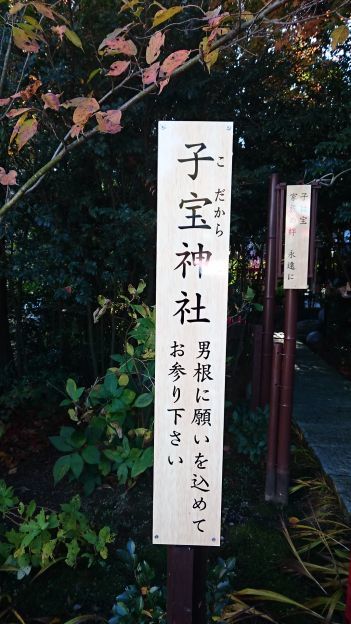 子宝神社
こだから
男根に願いを込めて
お参り下さい
子は宝
家族の絆 永遠に